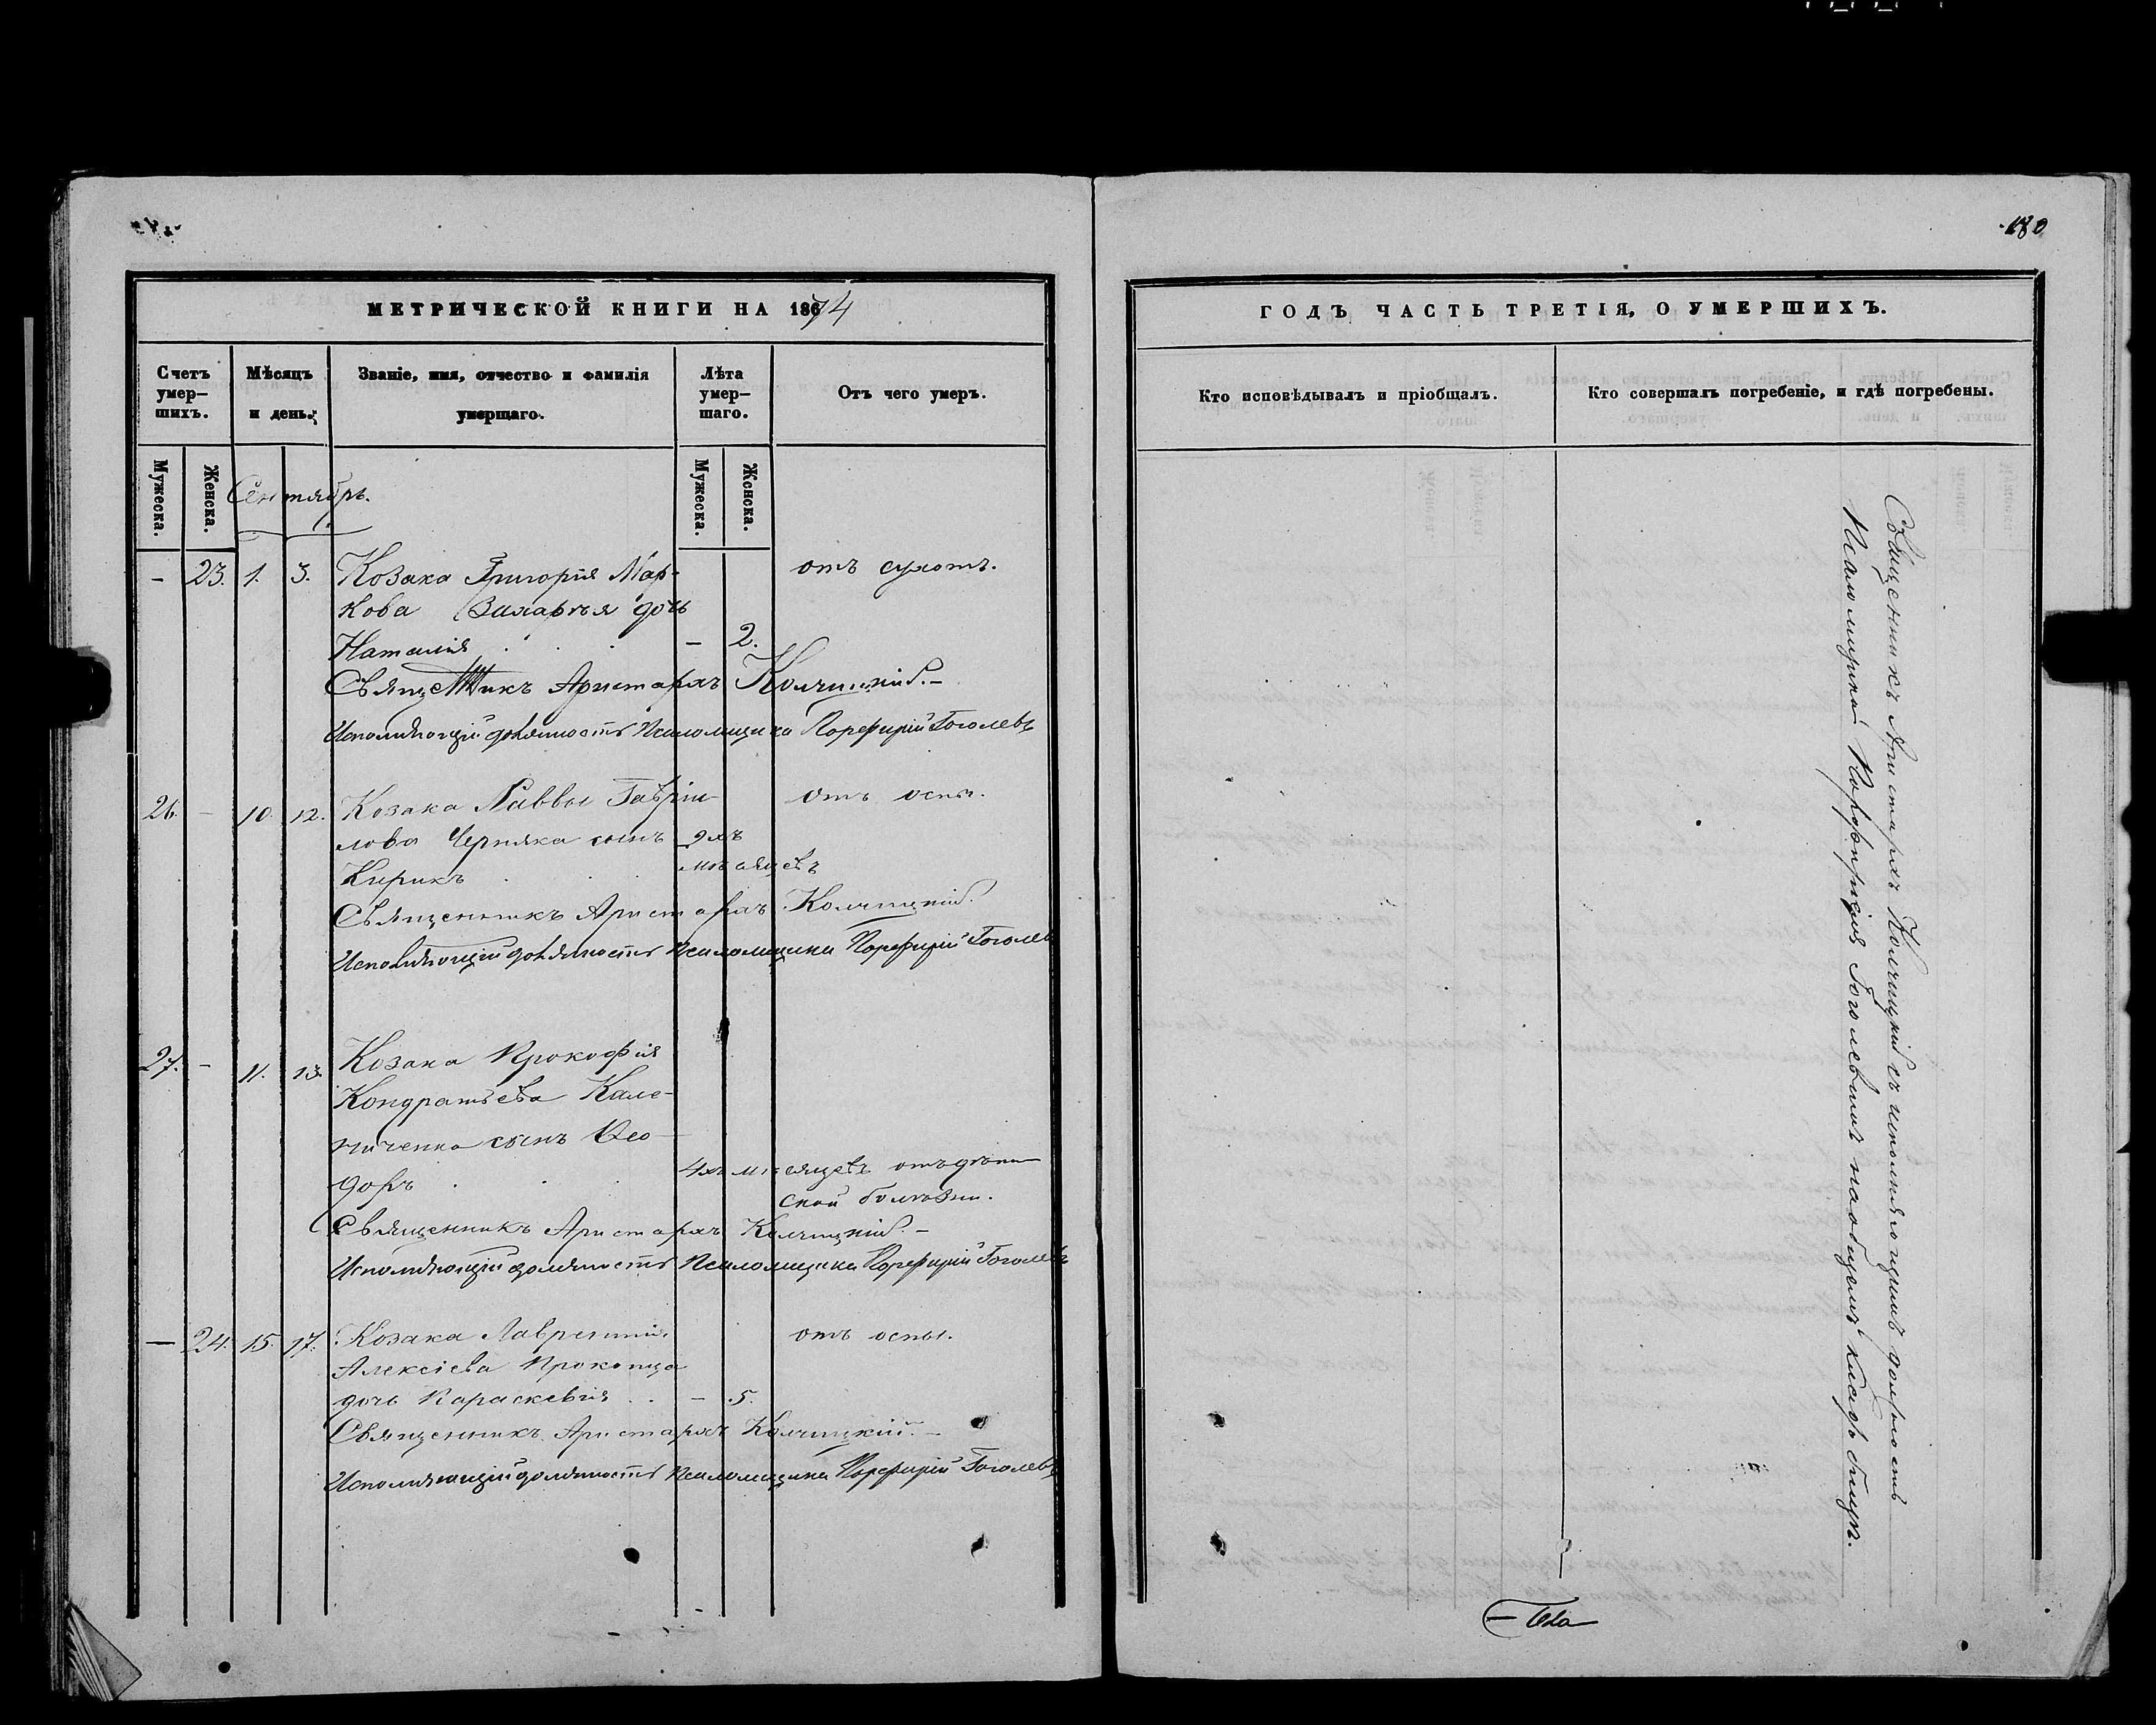 180
МЕТРИЧЕСКОЙ КНИГИ НА 1874
ГОДЪ ЧАСТЬ ТРЕТІЯ, О УМЕРШИХЪ.
Счетъ умер-шихъ.
Мѣсяцъ и день.
Званіе, имя, отчество и фамилія умершаго.
Лѣта умер-шаго.
Отъ чего умеръ.
Кто исповѣдывалъ и пріобщалъ.
Кто совершалъ погребеніе, и гдѣ погребены.
Мужеска.
Женска.
Мужеска.
Женска.
Сентябрь.
- 23. 1. 3. Козака Григорія Мар- отъ сухотъ.
кова дочь
Наталія - 2.
Священникъ Аристархъ Колчицкій.-
Исполняющій должность Псаломщика Порфирій Гоголевъ
26. - 10. 12. Козака Саввы Гаврiи- отъ оспы.
лова Черняка сынъ 9хъ
Кирикъ мѣсяцевъ
Священникъ Аристархъ Колчицкій.
Исполняющій должность Псаломщика Порфирій Гоголевъ
27. - 11. 13. Козака Прокофія
Кондратьева Кале-
ниченка сынъ Ѳео-
доръ 4хъ мѣсяцевъ отъ дѣт-
ской болѣзни.
Священникъ Аристархъ Колчицкій.-
Исполняющій должность Псаломщика Порфирій Гоголевъ
- 24. 15. 17. Козака Лаврентія отъ оспы.
Алексіева Прокопца
дочь Параскевія - 5.
Священникъ Аристархъ Колчицкій.-
Исполняющій должность Псаломщика Порфирій Гоголевъ
Священникъ Аристархъ Колчицкій съ исполняющимъ должность
Псаломщика Порфиріемъ Гоголевымъ на общемъ кладбищѣ.